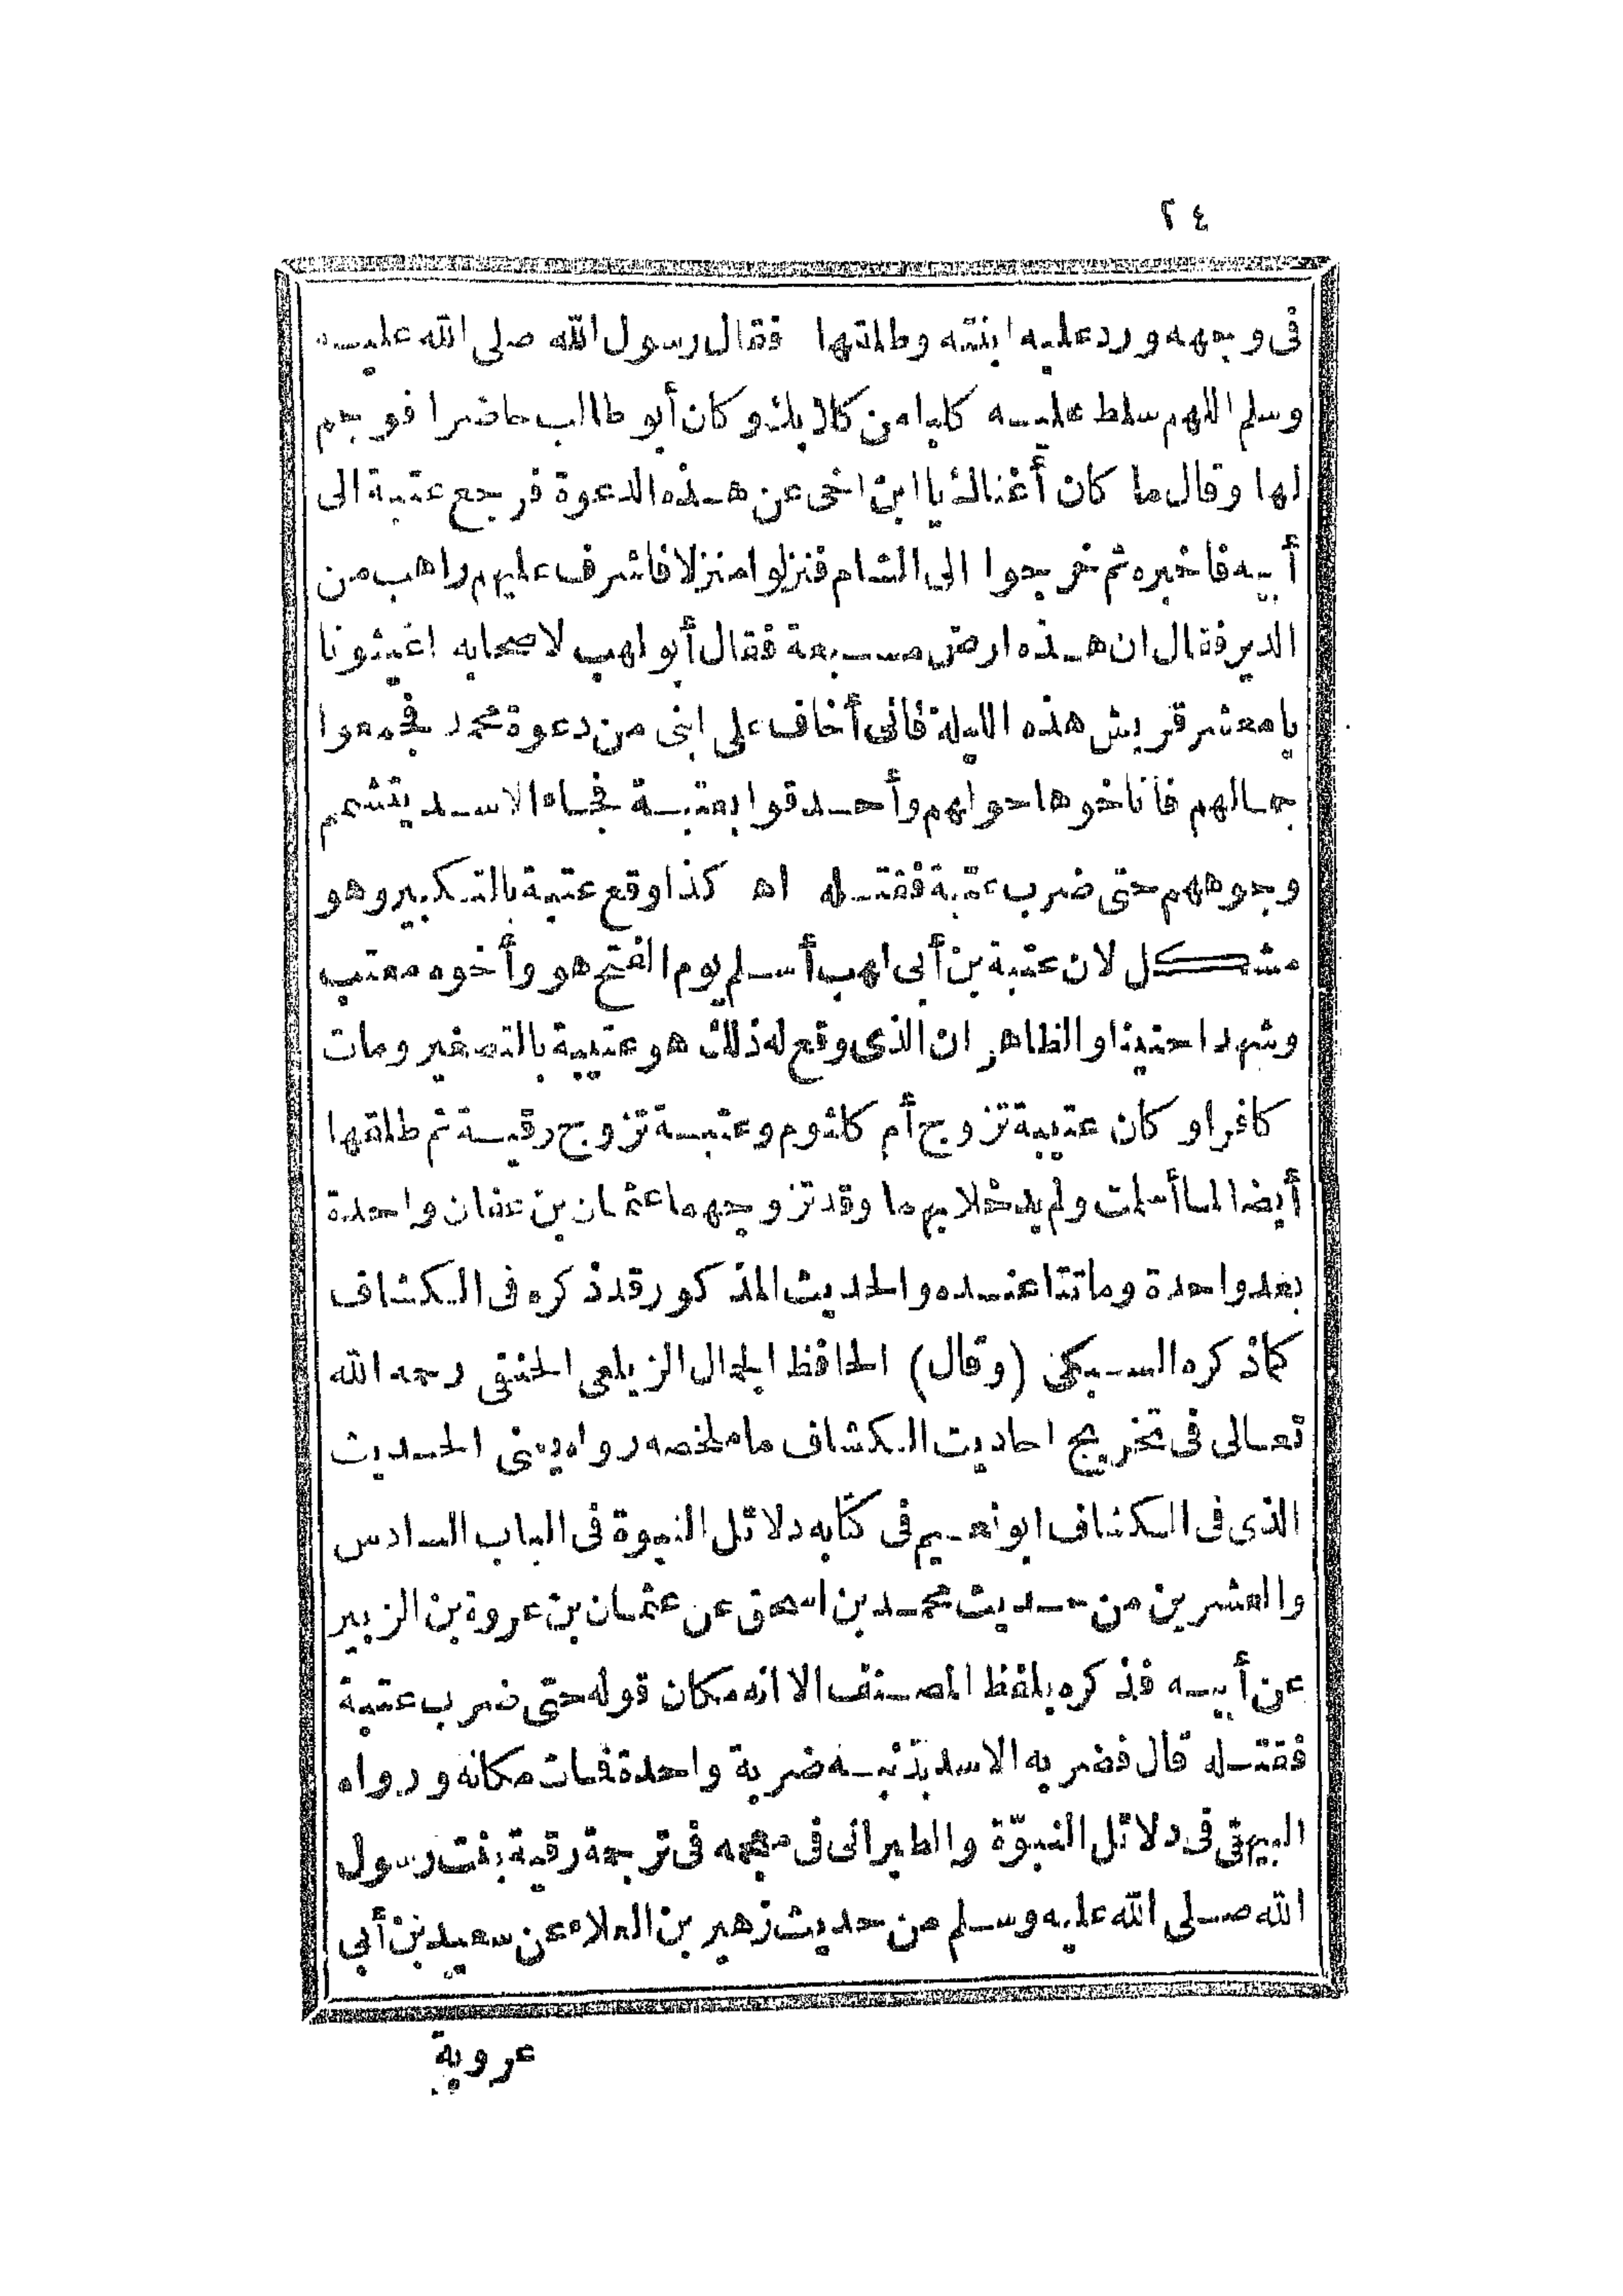 ٢٤
فى وجهه ورد عليه ابنته وطلقها فقال رسول الله صلى الله عليه
وسلم اللهم سلط عليه كلبا من كلابك وكان أبو طالب حاضرا فوجم
لها وقال ما كان أغناك يا ابن اخى عن هذه الدعوة فرجع عتبة الى
أبيه فاخبره ثم خرجوا الى الشام فنزلوا منزلا فاشرف عليهم راهب من
الدير فقال ان هذه ارض مسبعة فقال أبو لهب لاصحابه اغيثونا
يا معشر قريش هذه الليلة فانى أخاف على ابنى من دعوة محمد فجمعوا
جمالهم فأناخوها حولهم وأحدقوا بعتبة فجاء الاسد يتشمم
وجوههم حتى ضرب عتبة فقتله اه كذا وقع عتبة بالتكبير وهو
مشكل لان عتبة بن أبى لهب أسلم يوم الفتح هو وأخوه معتب
وشهدا حنينا والظاهر ان الذى وقع له ذلك هو عتيبة بالتصغير ومات
كافرا وكان عتيبة تزوج أم كلثوم وعتبة تزوج رقية ثم طلقها
أيضا لما أسلمت ولم يدخلا بهما وقد تزوجهما عثمان بن عفان واحدة
بعد واحدة وماتتا عنده والحديث المذكور قد ذكره فى الكشاف
كما ذكره السبكى (وقال) الحافظ الجمال الزيلعى الحنفى رحمه الله
تعالى فى تخريج احاديث الكشاف ما ملخصه رواه يعنى الحديث
الذى فى الكشاف ابو نعيم فى كتابه دلائل النبوة فى الباب السادس
والعشرين من حديث محمد بن اسحق عن عثمان بن عروة بن الزبير
عن أبيه فذكره بلفظ المصنف الا انه مكان قوله حتى ضرب عتبة
فقتله قال فضربه الاسد بذنبه ضربة واحدة فمات مكانه ورواه
البيهقى فى دلائل النبوّة والطبرانى فى معجمه فى ترجمة رقية بنت رسول
الله صلى الله عليه وسلم من حديث زهير بن العلاء عن سعيد بن أبى
عروبة